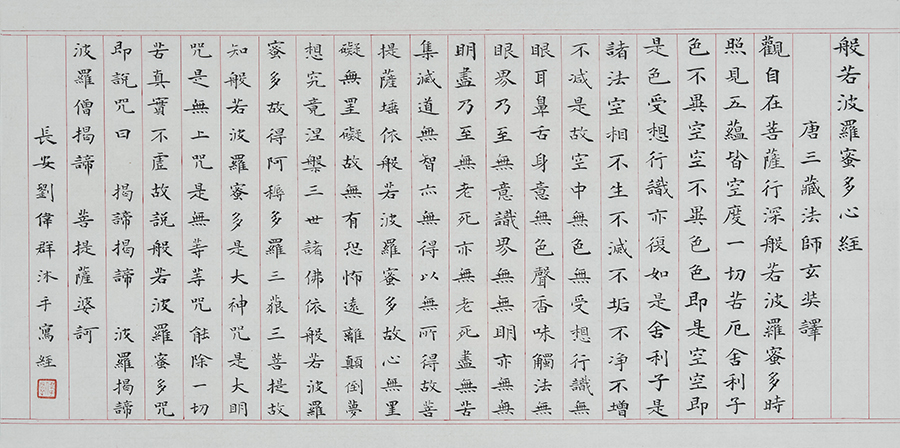 般若波羅蜜多心經
唐三藏法師玄奘譯
觀自在菩薩行深般若波羅蜜多時
照見五蘊皆空度一切苦厄舍利子
色不異空空不異色色即是空空即
是色受想行識亦復如是舍利子是
諸法空相不生不滅不垢不淨不增
不減是故空中無色無受想行識無
眼耳鼻舌身意無色聲香味觸法無
眼界乃至無意識界無無明亦無無
明盡乃至無老死亦無老死盡無苦
集滅道無智亦無得以無所得故菩
提薩埵依般若波羅蜜多故心無罣
礙無罣礙故無有恐怖遠離顛倒夢
想究竟涅槃三世諸佛依般若波羅
蜜多故得阿耨多羅三藐三菩提故
知般若波羅蜜多是大神咒是大明
咒是無上咒是無等等咒能除一切
苦真實不虛故說般若波羅蜜多咒
即說咒曰 揭諦揭諦 波羅揭諦
波羅僧揭諦 菩提薩婆訶
長安劉偉群沐手寫經